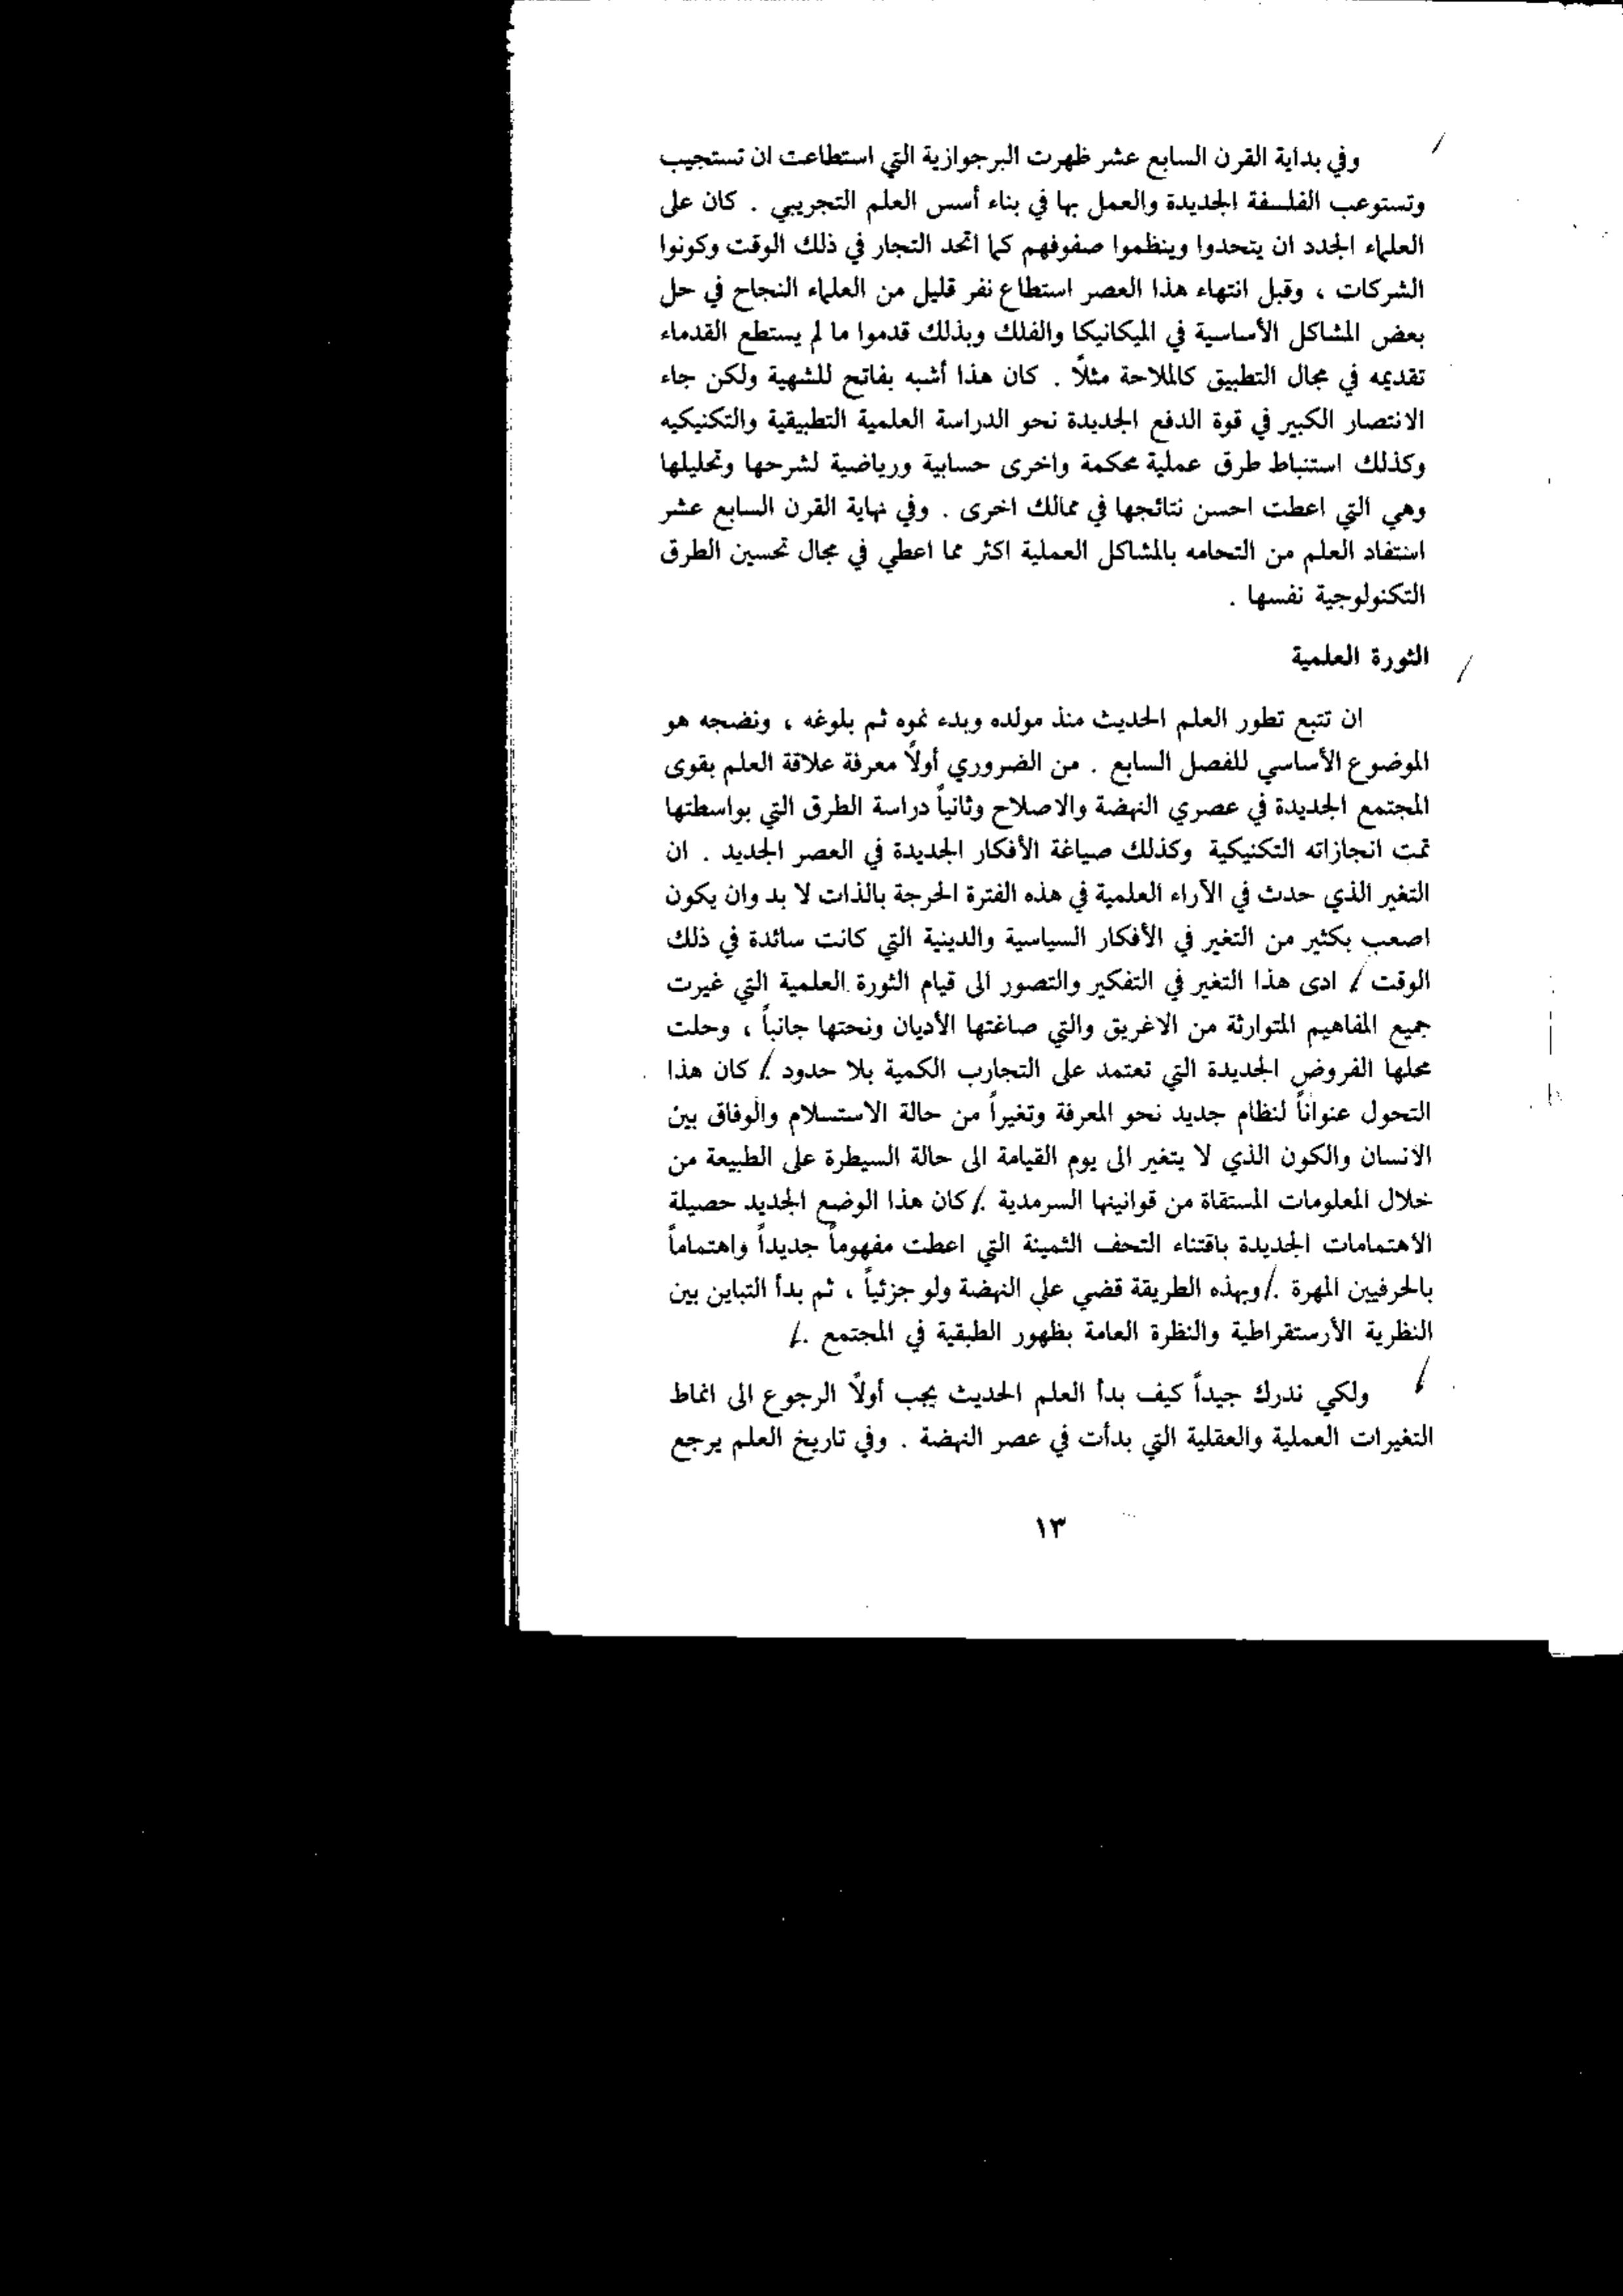 وفي بداية القرن السابع عشر ظهرت البرجوازية التي استطاعت ان تستجيب
وتستوعب الفلسفة الجديدة والعمل بها في بناء أسس العلم التجريبي . كان على
العلماء الجدد ان يتحدوا وينظموا صفوفهم كما اتحد التجار في ذلك الوقت وكونوا
الشركات ، وقبل انتهاء هذا العصر استطاع نفر قليل من العلماء النجاح في حل
بعض المشاكل الأساسية في الميكانيكا والفلك وبذلك قدموا ما لم يستطع القدماء
تقديمه في مجال التطبيق كالملاحة مثلاً . كان هذا أشبه بفاتح للشهية ولكن جاء
الانتصار الكبير في قوة الدفع الجديدة نحو الدراسة العلمية التطبيقية والتكنيكيه
وكذلك استنباط طرق عملية محكمة واخرى حسابية ورياضية لشرحها وتحليلها
وهي التي اعطت احسن نتائجها في ممالك اخرى . وفي نهاية القرن السابع عشر
استفاد العلم من التحامه بالمشاكل العملية اكثر مما اعطي في مجال تحسين الطرق
التكنولوجية نفسها .
الثورة العلمية
ان تتبع تطور العلم الحديث منذ مولده وبدء نموه ثم بلوغه ، ونضجه هو
الموضوع الأساسي للفصل السابع . من الضروري أولاً معرفة علاقة العلم بقوى
المجتمع الجديدة في عصري النهضة والاصلاح وثانياً دراسة الطرق التي بواسطتها
تمت انجازاته التكنيكية وكذلك صياغة الأفكار الجديدة في العصر الجديد . ان
التغير الذي حدث في الآراء العلمية في هذه الفترة الحرجة بالذات لا بد وان يكون
اصعب بكثير من التغير في الأفكار السياسية والدينية التي كانت سائدة في ذلك
الوقت / ادى هذا التغير في التفكير والتصور الى قيام الثورة العلمية التي غيرت
جميع المفاهيم المتوارثة من الاغريق والتي صاغتها الأديان ونحتها جانباً ، وحلت
محلها الفروض الجديدة التي تعتمد على التجارب الكمية بلا حدود ./ كان هذا
التحول عنواناً لنظام جديد نحو المعرفة وتغيراً من حالة الاستسلام والوفاق بين
الانسان والكون الذي لا يتغير الى يوم القيامة الى حالة السيطرة على الطبيعة من
خلال المعلومات المستقاة من قوانينها السرمدية ./ كان هذا الوضع الجديد حصيلة
الاهتمامات الجديدة باقتناء التحف الثمينة التي اعطت مفهوماً جديداً واهتماماً
بالحرفيين المهرة ./ وبهذه الطريقة قضي علي النهضة ولو جزئياً ، ثم بدأ التباين بين
النظرية الأرستقراطية والنظرة العامة بظهور الطبقية في المجتمع ./
ولكي ندرك جيداً كيف بدأ العلم الحديث يجب أولاً الرجوع الى انماط
التغيرات العملية والعقلية التي بدأت في عصر النهضة . وفي تاريخ العلم يرجع
١٣